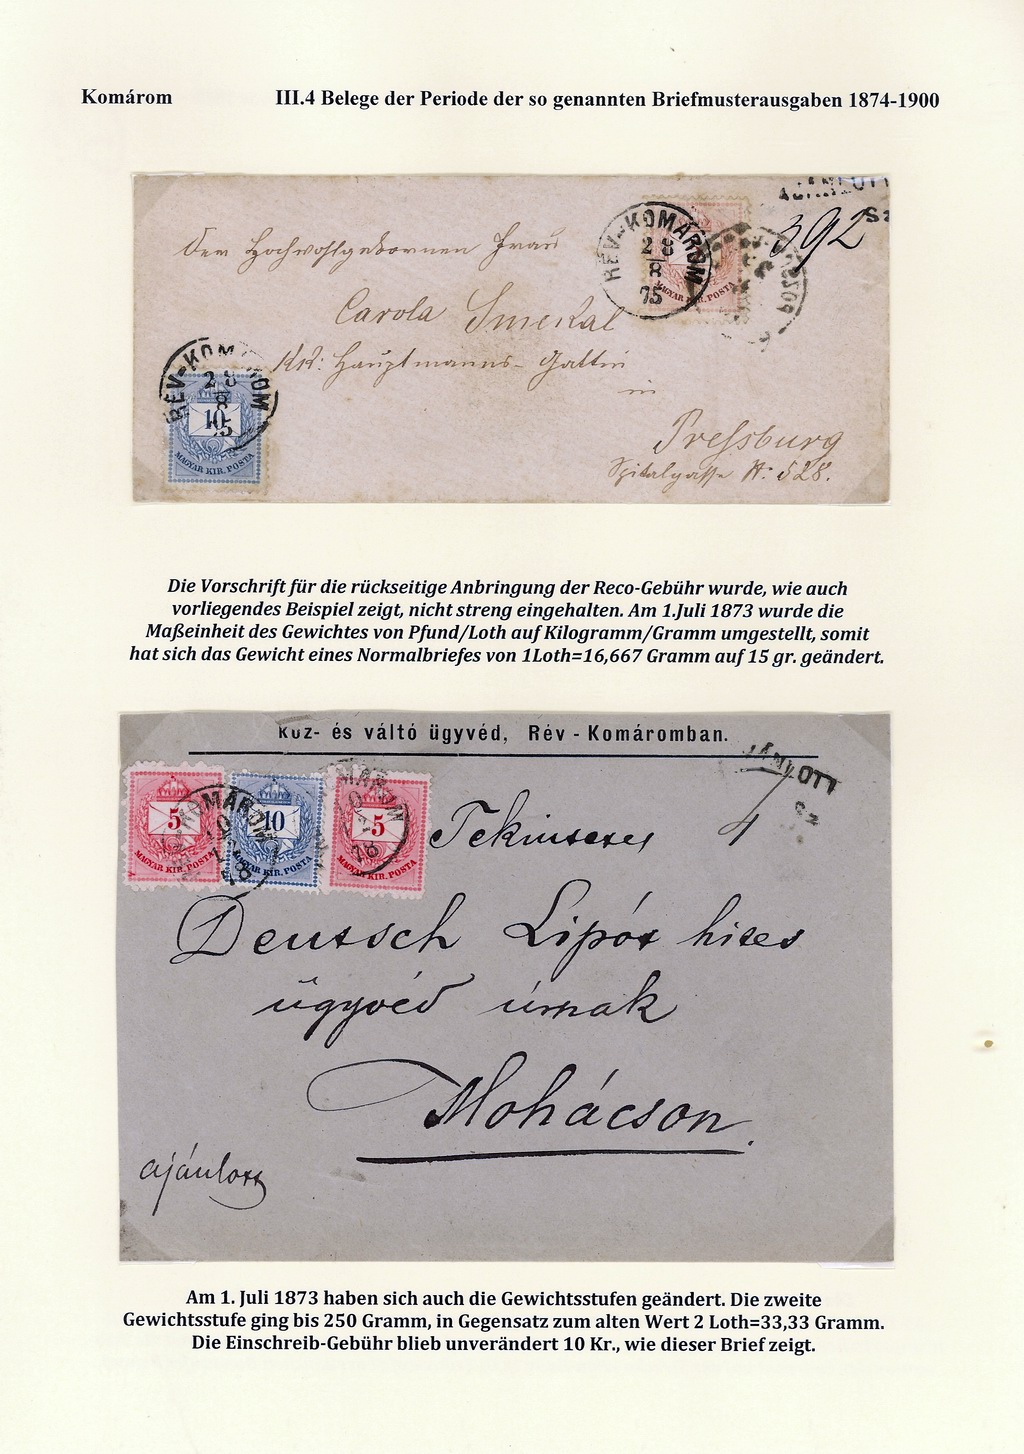 Komárom III.4 Belege der Periode der so genannten Briefmusterausgaben 1874-1900
AJÁNLOTT
Sz
392
RÉV-KOMÁROM
28
8
75
MAGYAR KIR. POSTA
POZSONY
Der Hochwohlgebornen Frau
Carola Smekal
KK: Hauptmanns-Gattin
in
Pressburg
Spitalgasse №: 528.
RÉV-KOMÁROM
28
8
75
10
MAGYAR KIR. POSTA
Die Vorschrift für die rückseitige Anbringung der Reco-Gebühr wurde, wie auch
vorliegendes Beispiel zeigt, nicht streng eingehalten. Am 1.Juli 1873 wurde die
Maßeinheit des Gewichtes von Pfund/Loth auf Kilogramm/Gramm umgestellt, somit
hat sich das Gewicht eines Normalbriefes von 1Loth=16,667 Gramm auf 15 gr. geändert.
Köz- és váltó ügyvéd, Rév - Komáromban.
AJÁNLOTT
Sz
5
MAGYAR KIR. POSTA
10
MAGYAR KIR. POSTA
5
MAGYAR KIR. POSTA
KOMÁROM
78
KOMÁROM
78
Tekintetes
Deutsch Lipót hites
ügyvéd úrnak
Mohácson.
ajánlott
Am 1. Juli 1873 haben sich auch die Gewichtsstufen geändert. Die zweite
Gewichtsstufe ging bis 250 Gramm, in Gegensatz zum alten Wert 2 Loth=33,33 Gramm.
Die Einschreib-Gebühr blieb unverändert 10 Kr., wie dieser Brief zeigt.